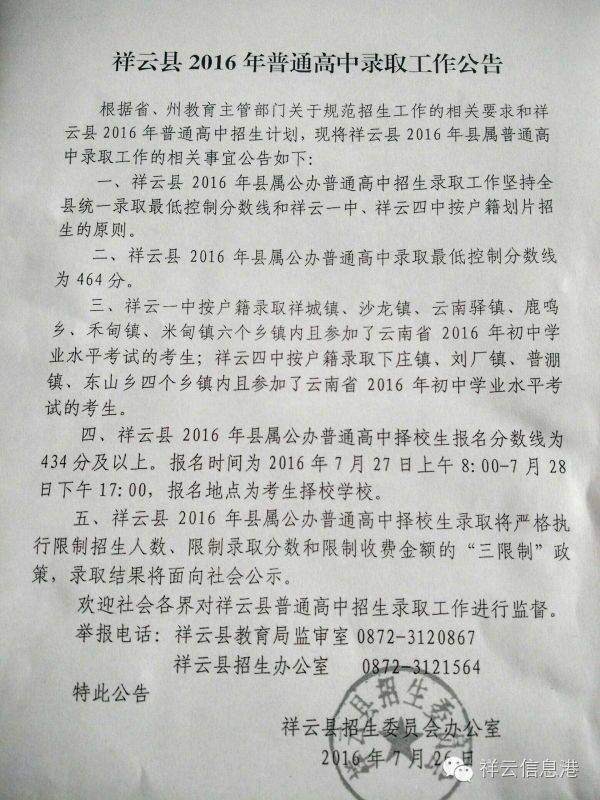 祥云县 2016 年普通高中录取工作公告
根据省、州教育主管部门关于规范招生工作的相关要求和祥
云县 2016 年普通高中招生计划，现将祥云县 2016 年县属普通高
中录取工作的相关事宜公告如下：
一、祥云县 2016 年县属公办普通高中招生录取工作坚持全
县统一录取最低控制分数线和祥云一中、祥云四中按户籍划片招
生的原则。
二、祥云县 2016 年县属公办普通高中录取最低控制分数线
为 464 分。
三、祥云一中按户籍录取祥城镇、沙龙镇、云南驿镇、鹿鸣
乡、禾甸镇、米甸镇六个乡镇内且参加了云南省 2016 年初中学
业水平考试的考生；祥云四中按户籍录取下庄镇、刘厂镇、普淜
镇、东山乡四个乡镇内且参加了云南省 2016 年初中学业水平考
试的考生。
四、祥云县 2016 年县属公办普通高中择校生报名分数线为
434 分及以上。报名时间为 2016 年 7 月 27 日上午 8:00-7 月 28
日下午 17:00，报名地点为考生择校学校。
五、祥云县 2016 年县属公办普通高中择校生录取将严格执
行限制招生人数、限制录取分数和限制收费金额的“三限制”政
策，录取结果将面向社会公示。
欢迎社会各界对祥云县普通高中招生录取工作进行监督。
举报电话：祥云县教育局监审室 0872-3120867
祥云县招生办公室 0872-3121564
特此公告
祥云县招生委员会办公室
2016 年 7 月 26 日
祥云信息港